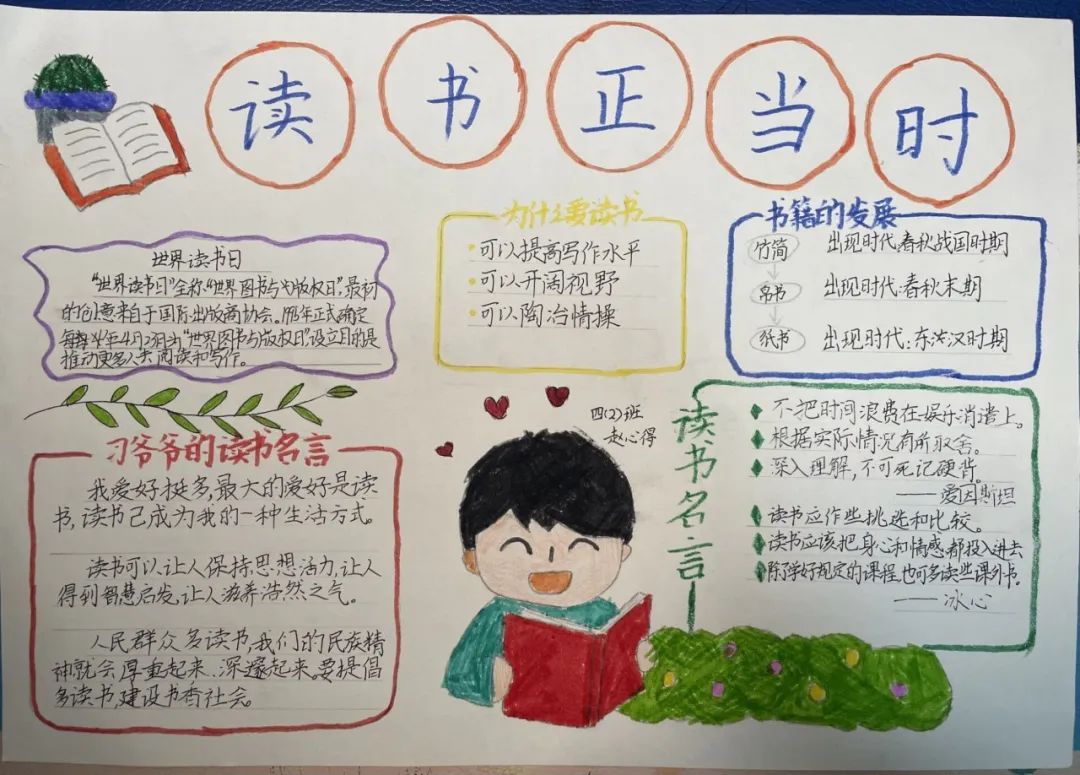 读书正当时
世界读书日
“世界读书日”全称“世界图书与版权日”,最初
的创意来自于国际出版商协会。1995年正式确定
每年4月23日为“世界图书与版权日”设立目的是
推动更多人去阅读和写作。
为什么要读书
·可以提高写作水平
·可以开阔视野
·可以陶冶情操
书籍的发展
竹简 出现时代:春秋战国时期
帛书 出现时代:春秋末期
纸书 出现时代:东汉时期
习爷爷的读书名言
我爱好挺多,最大的爱好是读
书,读书已成为我的一种生活方式。
读书可以让人保持思想活力,让人
得到智慧启发,让人滋养浩然之气。
人民群众多读书,我们的民族精
神就会厚重起来、深邃起来。要提倡
多读书,建设书香社会。
四(2)班
赵心得
读书名言
不把时间浪费在娱乐消遣上。
根据实际情况有所取舍。
深入理解,不可死记硬背。
——爱因斯坦
读书应作些挑选和比较。
读书应该把身心和情感都投入进去
除了学好规定的课程,也可多读些课外书。
——冰心